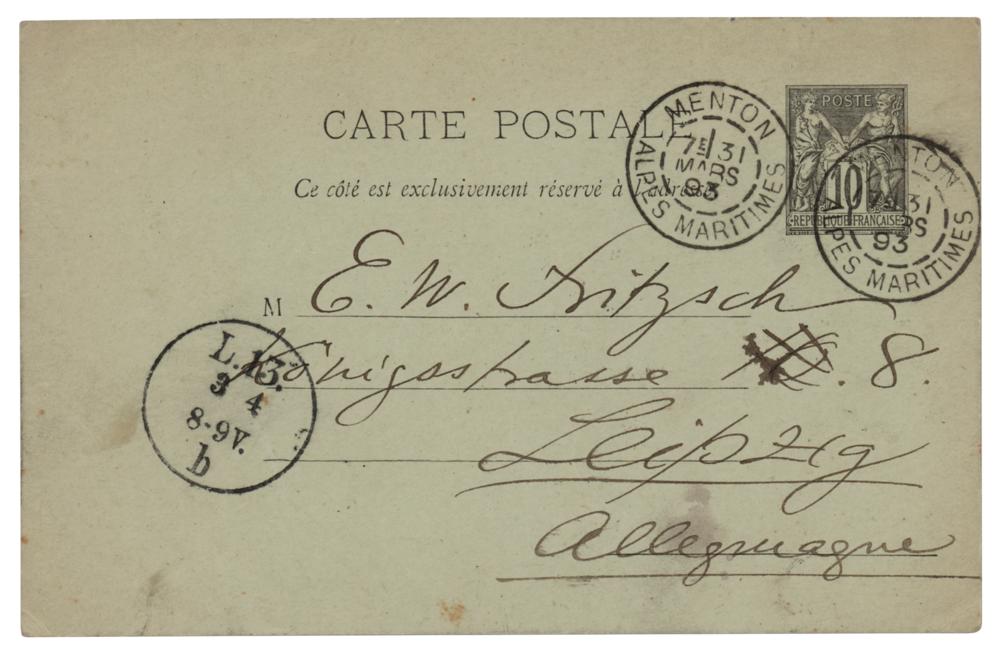 CARTE POSTALE
Ce côté est exclusivement réservé à l'adresse
MENTON
7E 31
MARS
93
ALPES MARITIMES
POSTE
10
REPUBLIQUE FRANÇAISE
MENTON
7E 31
MARS
93
ALPES MARITIMES
M E. W. Fritzsch
Königsstrasse 8.
Leipzig
Allegmagne
L. 13.
3 4
8-9V.
b